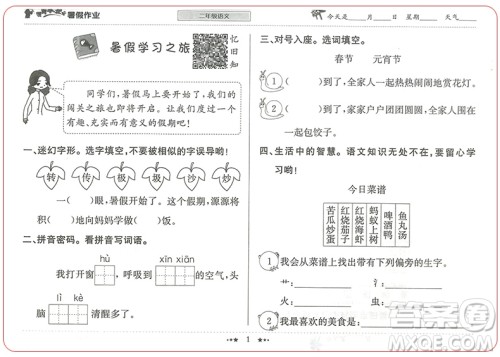 暑假作业
二年级语文
今天是____月____日 星期____ 天气____
暑假学习之旅
忆旧
回知
同学们，暑假马上要开始了，我们的
闯关之旅也即将开启。祝大家有一个有
趣、充实而有意义的假期吧！
一、迷幻字形。选字填空，不要被相似的字误导哟！
转 传 极 圾 沙 炒
一（ ）眼，暑假开始了。这个假期，源源将
积（ ）地向妈妈学做（ ）饭。
二、拼音密码。看拼音写词语。
hū xī xīn xiān
我打开窗 的空气，头
lì kè
脑 清醒了！
三、对号入座。选词填空。
春节 元宵节
1 （ ）到了，全家人一起热热闹闹地赏花灯。
2 （ ）到了，家家户户团团圆圆，全家人
一起包饺子。
四、生活中的智慧。语文知识无处不在，要留心学
习哟！
今日菜谱
苦瓜炒蛋
红烧茄子
红烧海虾
蚂蚁上树
啤酒鸭
鱼丸汤
1 我会从菜谱上找出带有下列偏旁的生字。
艹：
火： 虫：
2 我最喜欢的美食是：
1